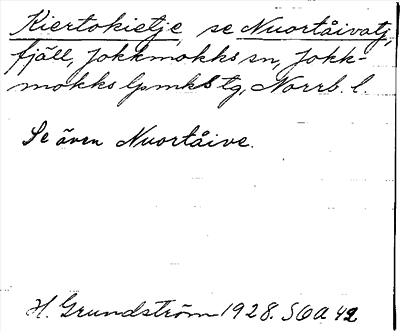 Kiertokietje, se Nuortåivatj,
fjäll, Jokkmokks sn, Jokk-
mokks lpmks tg, Norrb. l.
Se även Nuortåive.
H. Grundström 1928. SOA 42